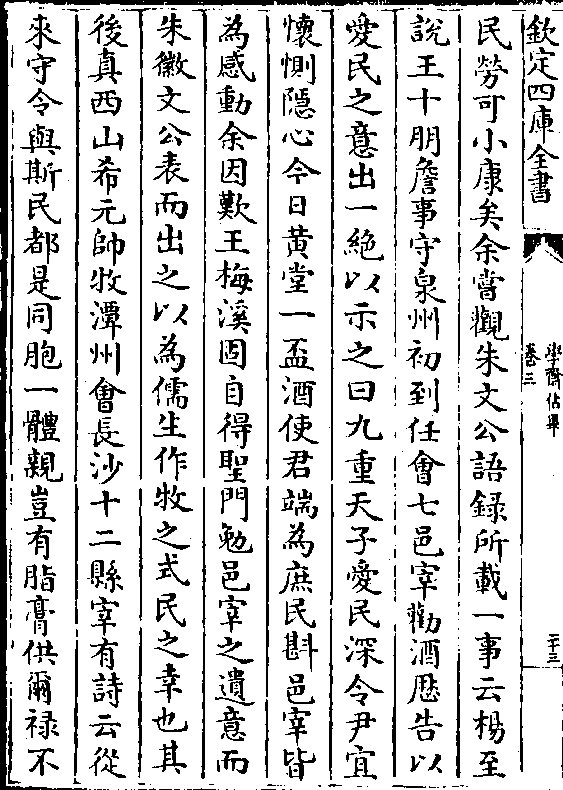 欽定四庫全書
學齋佔畢
卷三
二十三
民勞可小康矣余嘗觀朱文公語録所載一事云楊至
說王十朋詹事守泉州初到任會七邑宰勸酒厯告以
愛民之意出一絶以示之曰九重天子愛民深令尹宜
懷惻隠心今日黄堂一盃酒使君端為庶民斟邑宰皆
為感動余因歎王梅溪固自得聖門勉邑宰之遺意而
朱徽文公表而出之以為儒生作牧之式民之幸也其
後真西山希元帥牧潭州會長沙十二縣宰有詩云從
來守令與斯民都是同胞一體親豈有脂膏供爾禄不